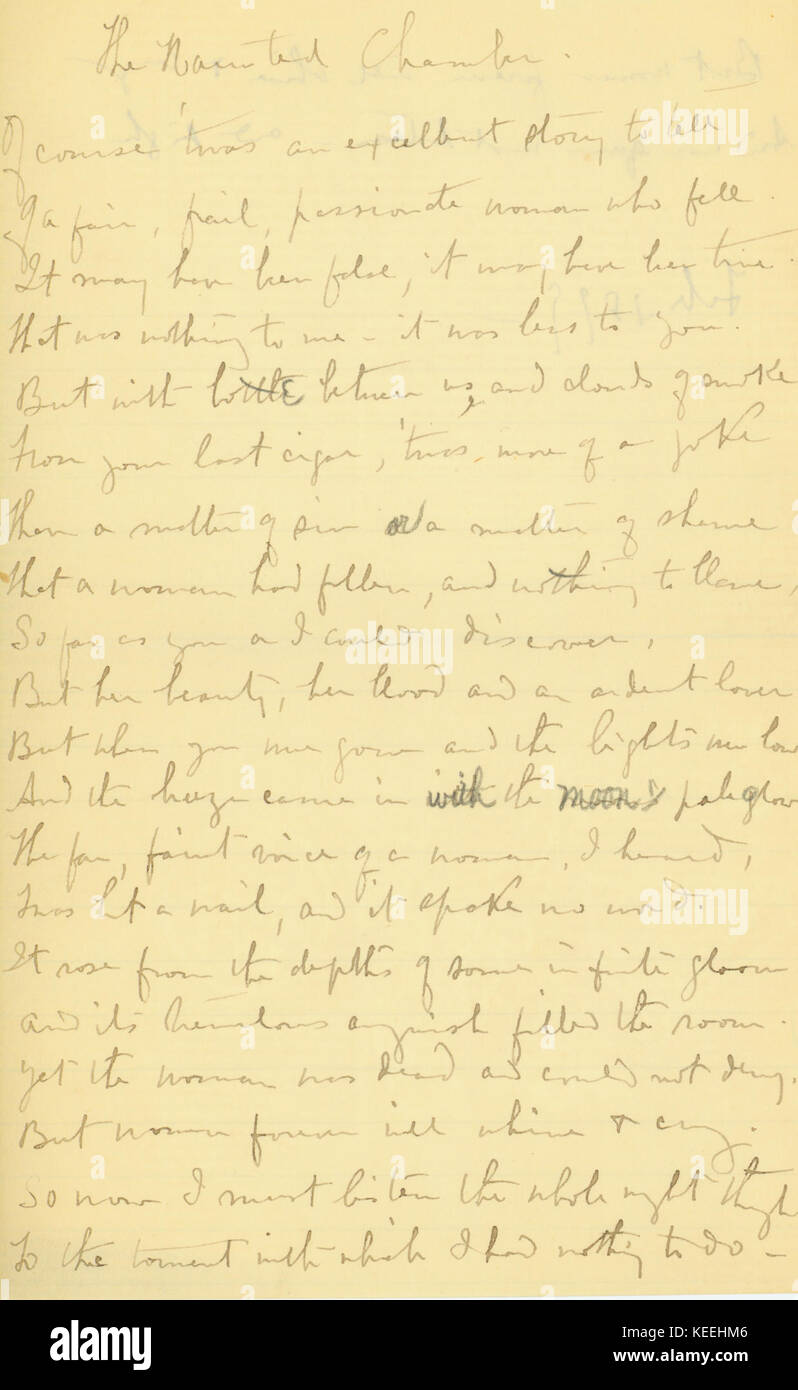 The Haunted Chamber.
Of course 'twas an excellent story to tell
Of a fair, frail, passionate woman who fell.
It may have been false, it may have been true.
That was nothing to me – it was less to you.
But with bottle between us, and clouds of smoke
From your last cigar, 'twas more of a joke
Than a matter of sin or a matter of shame
That a woman had fallen, and nothing to blame,
So far as you or I could discover,
But her beauty, her blood and an ardent lover
But when you were gone and the lights were low
And the breeze came in with the moon's pale glow
The far, faint voice of a woman, I heard,
'Twas but a wail, and it spoke no word.
It rose from the depths of some infinite gloom
and its tremulous anguish filled the room.
Yet the woman was dead and could not deny.
But women forever will whine & cry.
So now I must listen the whole night through
To the torment with which I had nothing to do –
alamy
Image ID: KEEHM6
www.alamy.com